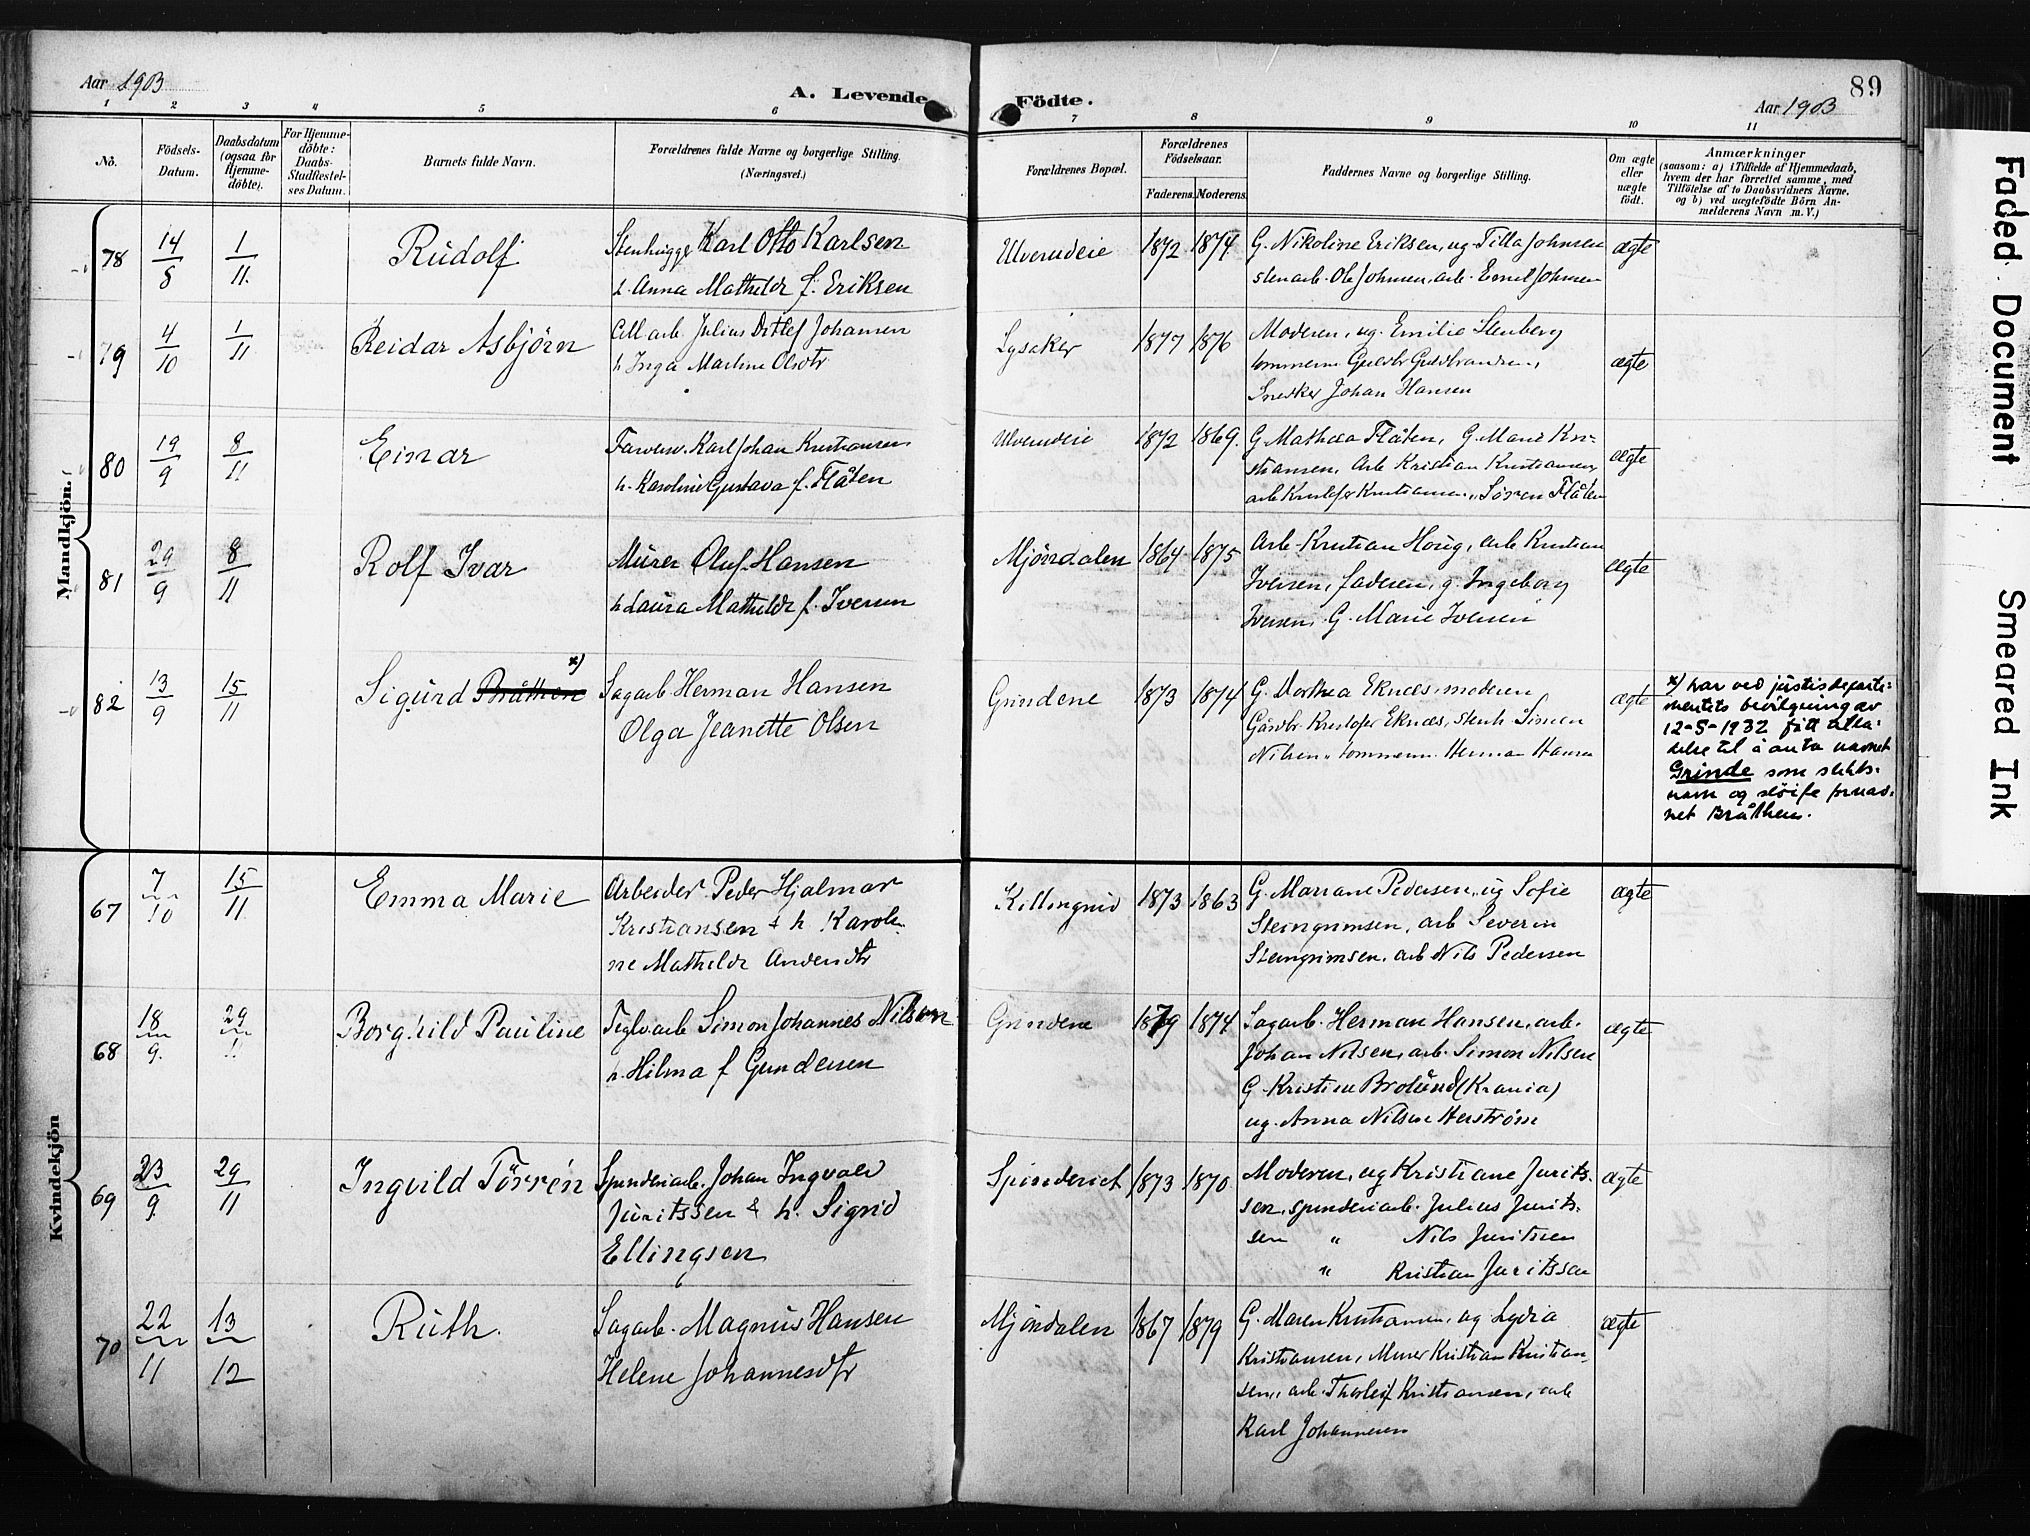 Aar 1903
A. Levende Födte.
89
Aar 1903
1 2 3 4 5 6 7 8 9 10 11
No.
Födsels-
Datum.
Daabsdatum
(ogsaa for
Hjemme-
döbte).
For Hjemme-
döbte:
Daabs-
Stadfæstel-
ses Datum.
Barnets fulde Navn.
Forældrenes fulde Navne og borgerlige Stilling.
(Næringsvei.)
Forældrenes Bopæl.
Forældrenes
Födselsaar.
Faderens. Moderens.
Faddernes Navne og borgerlige Stilling.
Om ægte
eller
uægte
födt.
Anmærkninger
(saasom: a) i Tilfælde af Hjemmedaab,
hvem der har forrettet samme, med
Tilföielse af to Daabsvidners Navne,
og b) ved uægtefödte Börn An-
melderens Navn m. V.)
Mandkjön.
78
14/8
1/11.
Rudolf
Stenhugger Karl Otto Karlsen
h. Anna Mathilde f. Eriksen
Ulverudeie
1872 1874
G. Nikoline Eriksen, ug. Tilla Johnsen
stenarb. Ole Johnsen, arb. Emil Johnsen
ægte
79
4/10
1/11
Reidar Asbjörn
Cell arb. Julius Ditlef Johansen
h Inga Martine Olsdtr
Lysaker
1877 1876
Moderen, ug. Emilie Stenberg
tømmerm Guldbr Guldbrandsen,
Snedker Johan Hansen
ægte
80
19/9
8/11
Einar
Farvesv. Karl Johan Kristiansen
h. Karoline Gustava f. Flåten
Ulverudeie
1872 1869.
G. Mathea Flåten, G. Marie Kri-
stiansen, Arb Kristian Kristiansen,
arb Kristofer Kristiansen, Sören Flåten
ægte
81
29/9
8/11
Rolf Ivar
Murer Oluf Hansen
h Laura Mathilde f. Iversen
Mjöndalen
1864 1875
Arb. Kristian Houg, arb Kristian
Iversen, faderen, g. Ingeborg
Iversen, G. Marie Iversen
ægte
82
13/9
15/11
Sigurd Bråthen x)
Sagarb. Herman Hansen
Olga Jeanette Olsen
Grindene
1873 1874
G. Dorthea Eknæs, moderen
Gårdbr. Kristofer Eknæs, stenh. Simen
Nilsen, tømmerm. Herman Hansen
ægte
x) har ved justisdeparte-
mentets bevilgning av
12-5-1932 fått tilla-
delse til å anta navnet
Grinde som slekts-
navn og sløife fornav-
net Bråthen.
Kvindekjön
67
7/10
15/11
Emma Marie
Arbeider Peder Hjalmar
Kristiansen & h. Karoli-
ne Mathilde Andersdtr
Killingrud
1873 1863
G. Mariane Pedersen, ug Sofie
Steingrimsen, arb Severin
Steingrimsen, arb Nils Pedersen
ægte
68
18/9.
29/11
Borghild Pauline
Teglv.arb Simon Johannes Nilsen
h. Hilma f Gundersen
Grindene
1879 1874
Sagarb. Herman Hansen, arb.
Johan Nilsen, arb. Simon Nilsen
G. Kristine Brolund (Krania)
ug. Anna Nilsen
ægte
69
23/9.
29/11
Ingvild Törrén
Spinderiarb. Johan Ingvald
Juritssen & h. Sigrid
Ellingsen
Spinderiet
1873 1870
Moderen, ug Kristiane Jurits-
sen, spinderiarb. Julius Jurits-
sen " Nils Juritssen
" Kristian Juritssen
ægte
70
22/11
13/12
Ruth.
Sagarb. Magnus Hansen
Helene Johannesdtr
Mjöndalen
1867 1879
G. Maren Kristiansen, ug Lydia
Kristiansen, Murer Kristian Kristian-
sen, arb. Thorleif Kristiansen, arb
Karl Johannesen
ægte
Faded Document
Smeared Ink